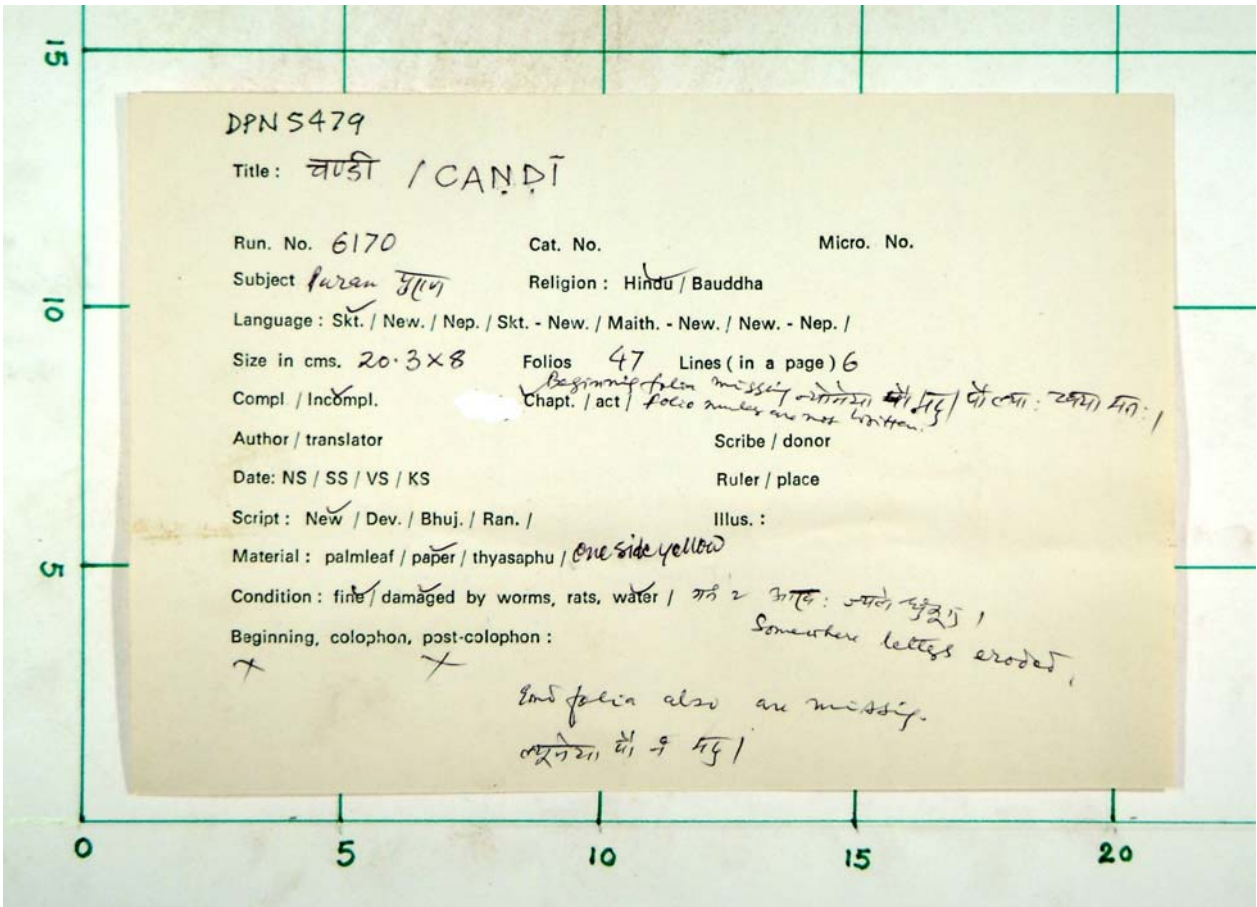 15
DPN 5479
Title : चण्डी / CAṆḌĪ
Run. No. 6170 Cat. No. Micro. No.
Subject Puran पुराण Religion : Hindu / Bauddha
10
Language : Skt. / New. / Nep. / Skt. - New. / Maith. - New. / New. - Nep. /
Size in cms. 20.3 × 8 Folios 47 Lines ( in a page ) 6
Beginnig folia missig मदु । पौ ल्याः च्वया मतः ।
Compl / Incompl. Chapt. / act / folio number are not written.
Author / translator Scribe / donor
Date: NS / SS / VS / KS Ruler / place
Script : New / Dev. / Bhuj. / Ran. / Illus. :
5
Material : palmleaf / paper / thyasaphu / one side yellow
Condition : fine / damaged by worms, rats, water /
Somewhere letters eroded.
Beginning, colophon, post-colophon :
× ×
End folia also are missig.
पौ नं मदु ।
0 5 10 15 20